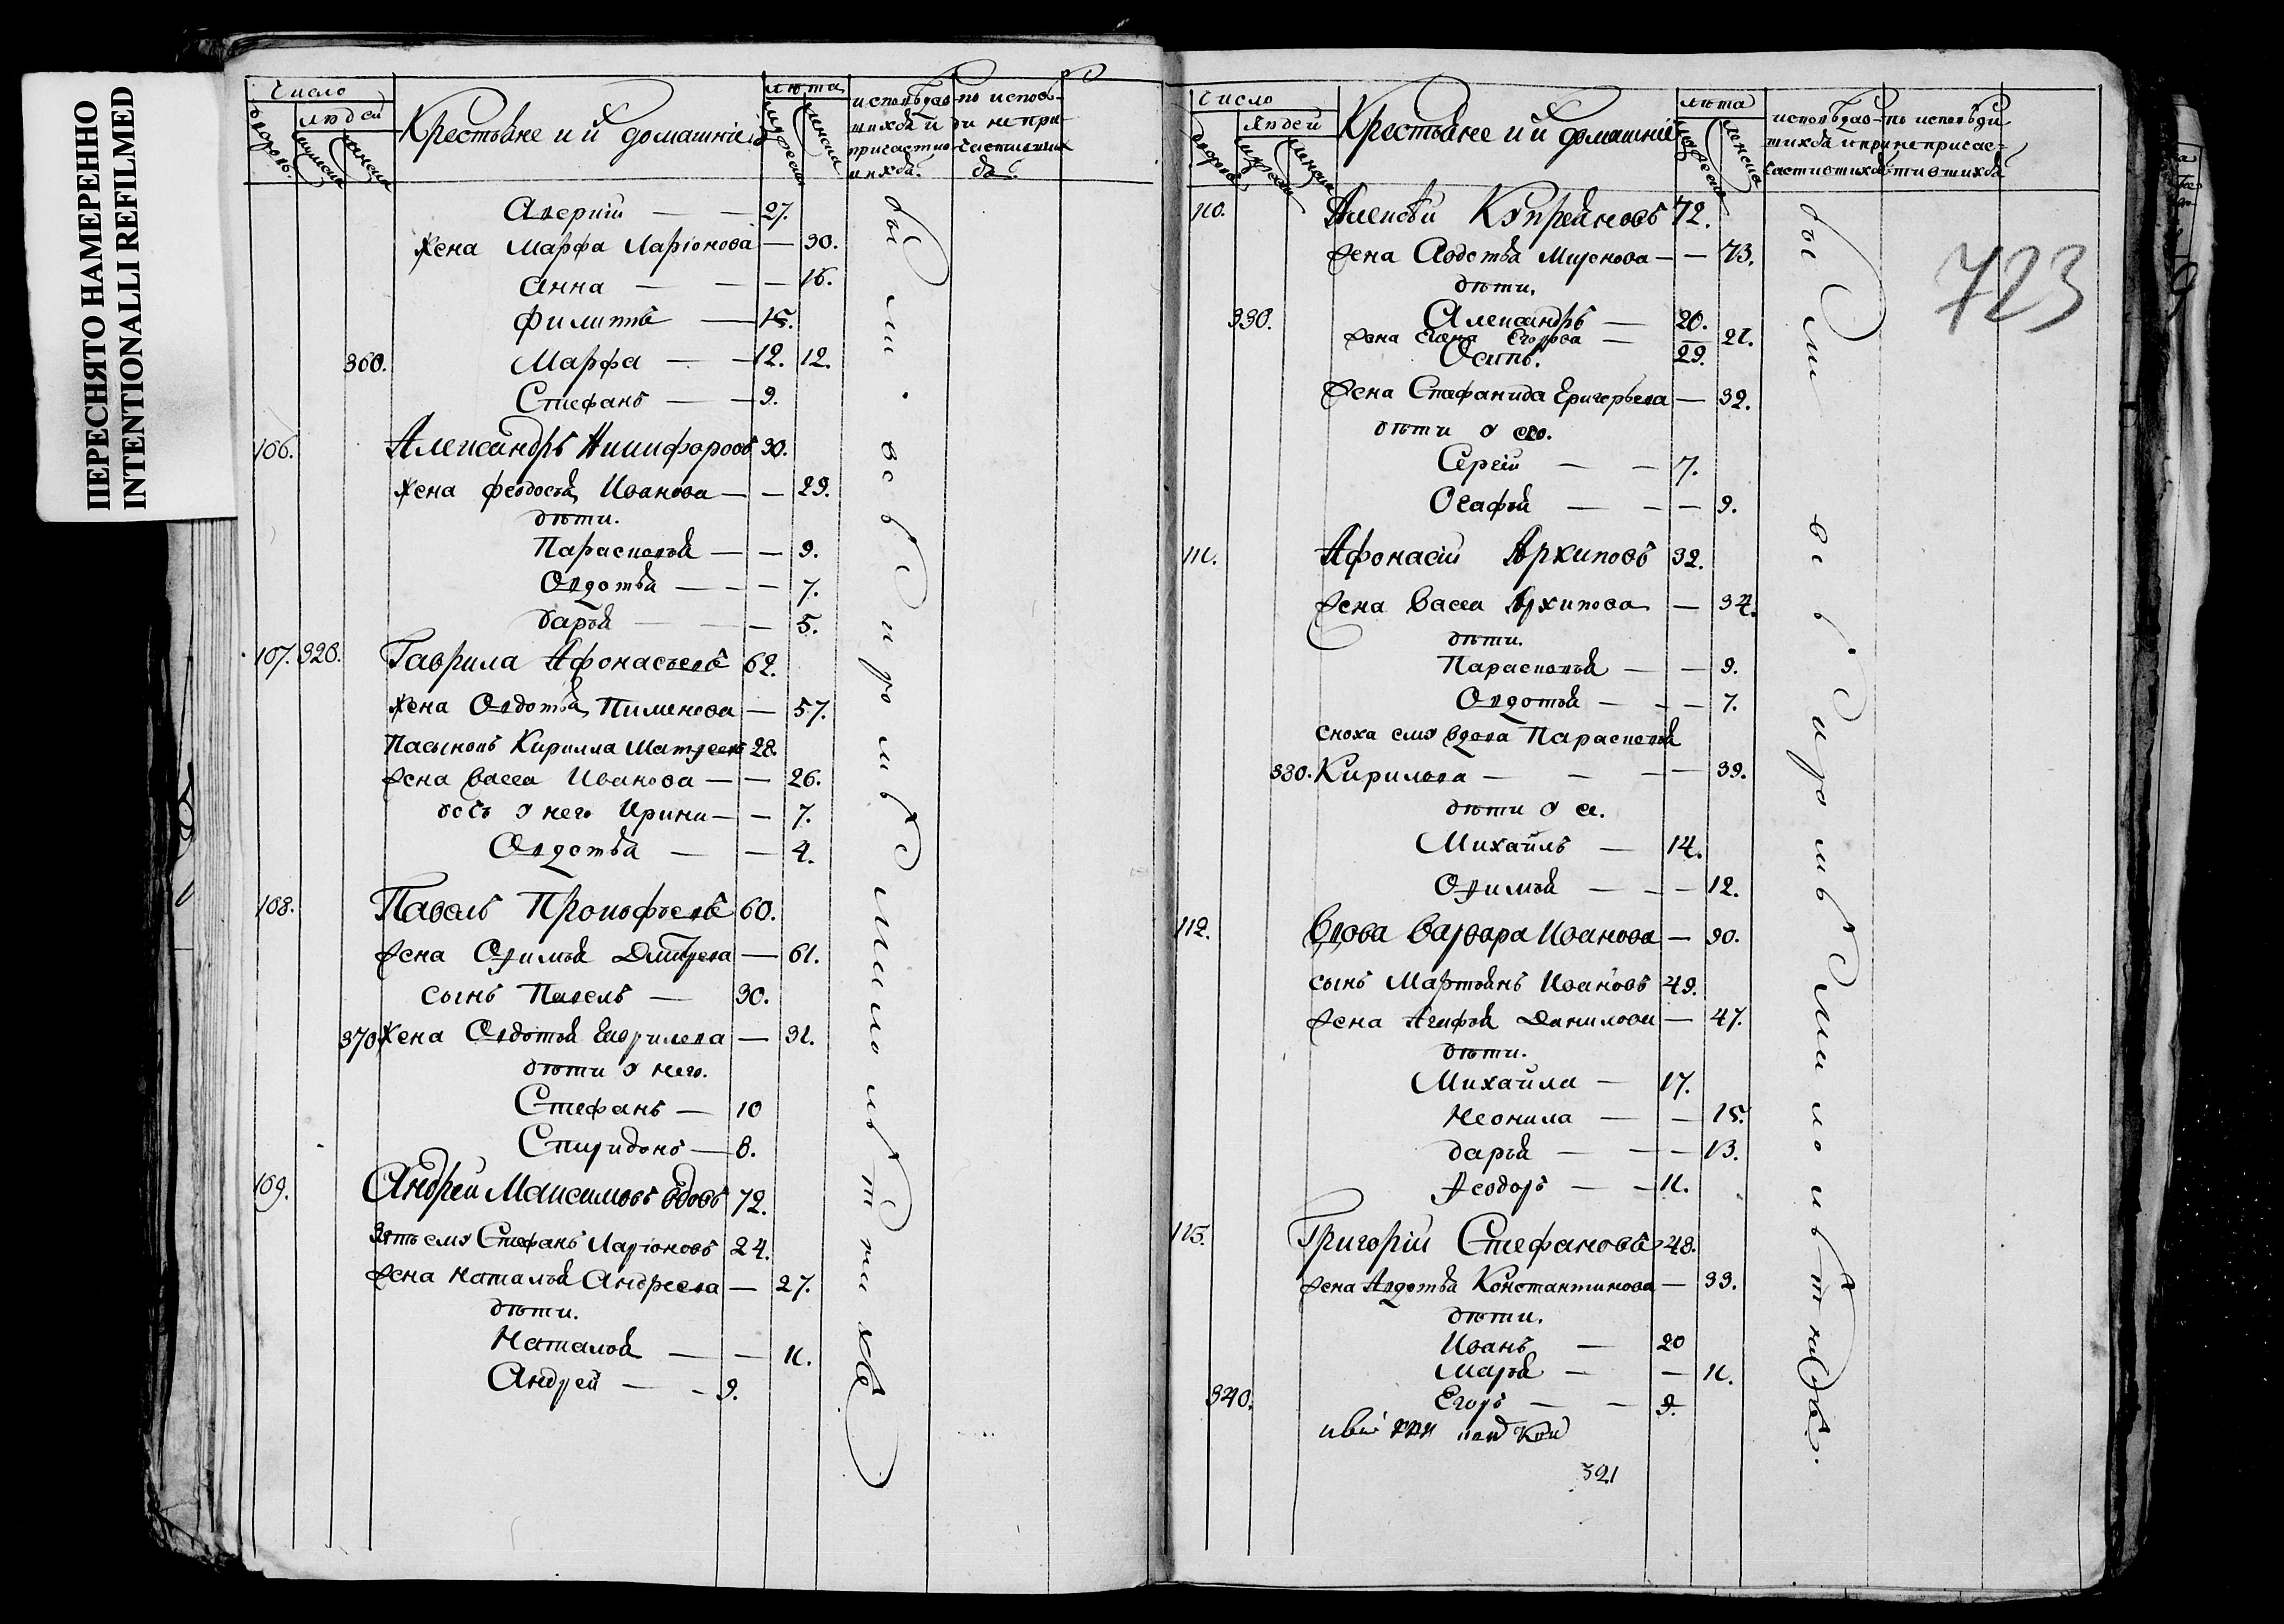 ПЕРЕСНЯТО НАМЕРЕННО
INTENTIONALLI REFILMED
Число
людей
лѣта
Крестьяне и й домашніе
исповѣдав- по испов-
шихся и ди не при-
причастив- частивших
шихся. ся.
Аверкій — — 27.
Жена Марфа Ларіонова — 30.
Анна — — — 16.
Филиппъ — 15.
360. Марфа — — 12. 12.
Стефанъ — — 9.
106. Александръ Никифоровъ 30.
Жена Феодосья Иванова — — 29.
дѣти.
Парасковья — — 9.
Овдотья — — — 7.
Дарья — — — 5.
107. 320. Гаврила Афонасьевъ 62.
Жена Овдотья Пименова — 57.
Пасынокъ Кирилла Матвеевъ 28.
Жена Васса Иванова — — 26.
у него Ирина — — 7.
Овдотья — — 4.
108. Павелъ Прокофьевъ 60.
Жена Офимья Дмитрева — 61.
сынъ Павелъ — 30.
370 Жена Овдотья Гаврилева — 31.
дѣти у него.
Стефанъ — 10
Спиридонъ — 8.
109. Андрей Максимовъ вдовъ 72.
Зять ему Стефанъ Ларіоновъ 24.
Жена Наталья Андреева — 27.
дѣти.
Наталья — — 11.
Андрей — — 9.
были. всѣ и ро мѣ мало лѣт ни хъ
Число
людей
лѣта
Крестьяне и й домашніе
исповѣдав- по исповѣди
шихся и при не причас-
частившихся тившихся
723
110. Алексѣй Купреяновъ 72.
Жена Авдотья Миронова — — 73.
дѣти.
330. Александръ — 20.
Жена Елена Егорова — — 21.
Осипъ. 29.
Жена Стефанида Григорьева — 32.
дѣти у его.
Сергій — — 7.
Огафья — — — 9.
111. Афонасій Архиповъ 32.
Жена Васса Архипова — 34.
дѣти.
Парасковья — — 9.
Овдотья — — — 7.
сноха ему вдова Парасковья
380. Кирилова — — — — 39.
дѣти у ее.
Михайлъ — 14.
Офимья — — — 12.
112. Вдова Варвара Иванова — 90.
сынъ Мартынъ Ивановъ 49.
Жена Агафья Данилова — 47.
дѣти.
Михайла — 17.
Неонила — — 15.
Дарья — — — 13.
Феодоръ — — 11.
113. Григорій Стефановъ 48.
Жена Авдотья Константинова — 39.
дѣти.
Иванъ — 20
Марья — — 11.
340. Егоръ — — 9.
321
были всѣ и ро мѣ мало лѣт ни хъ.